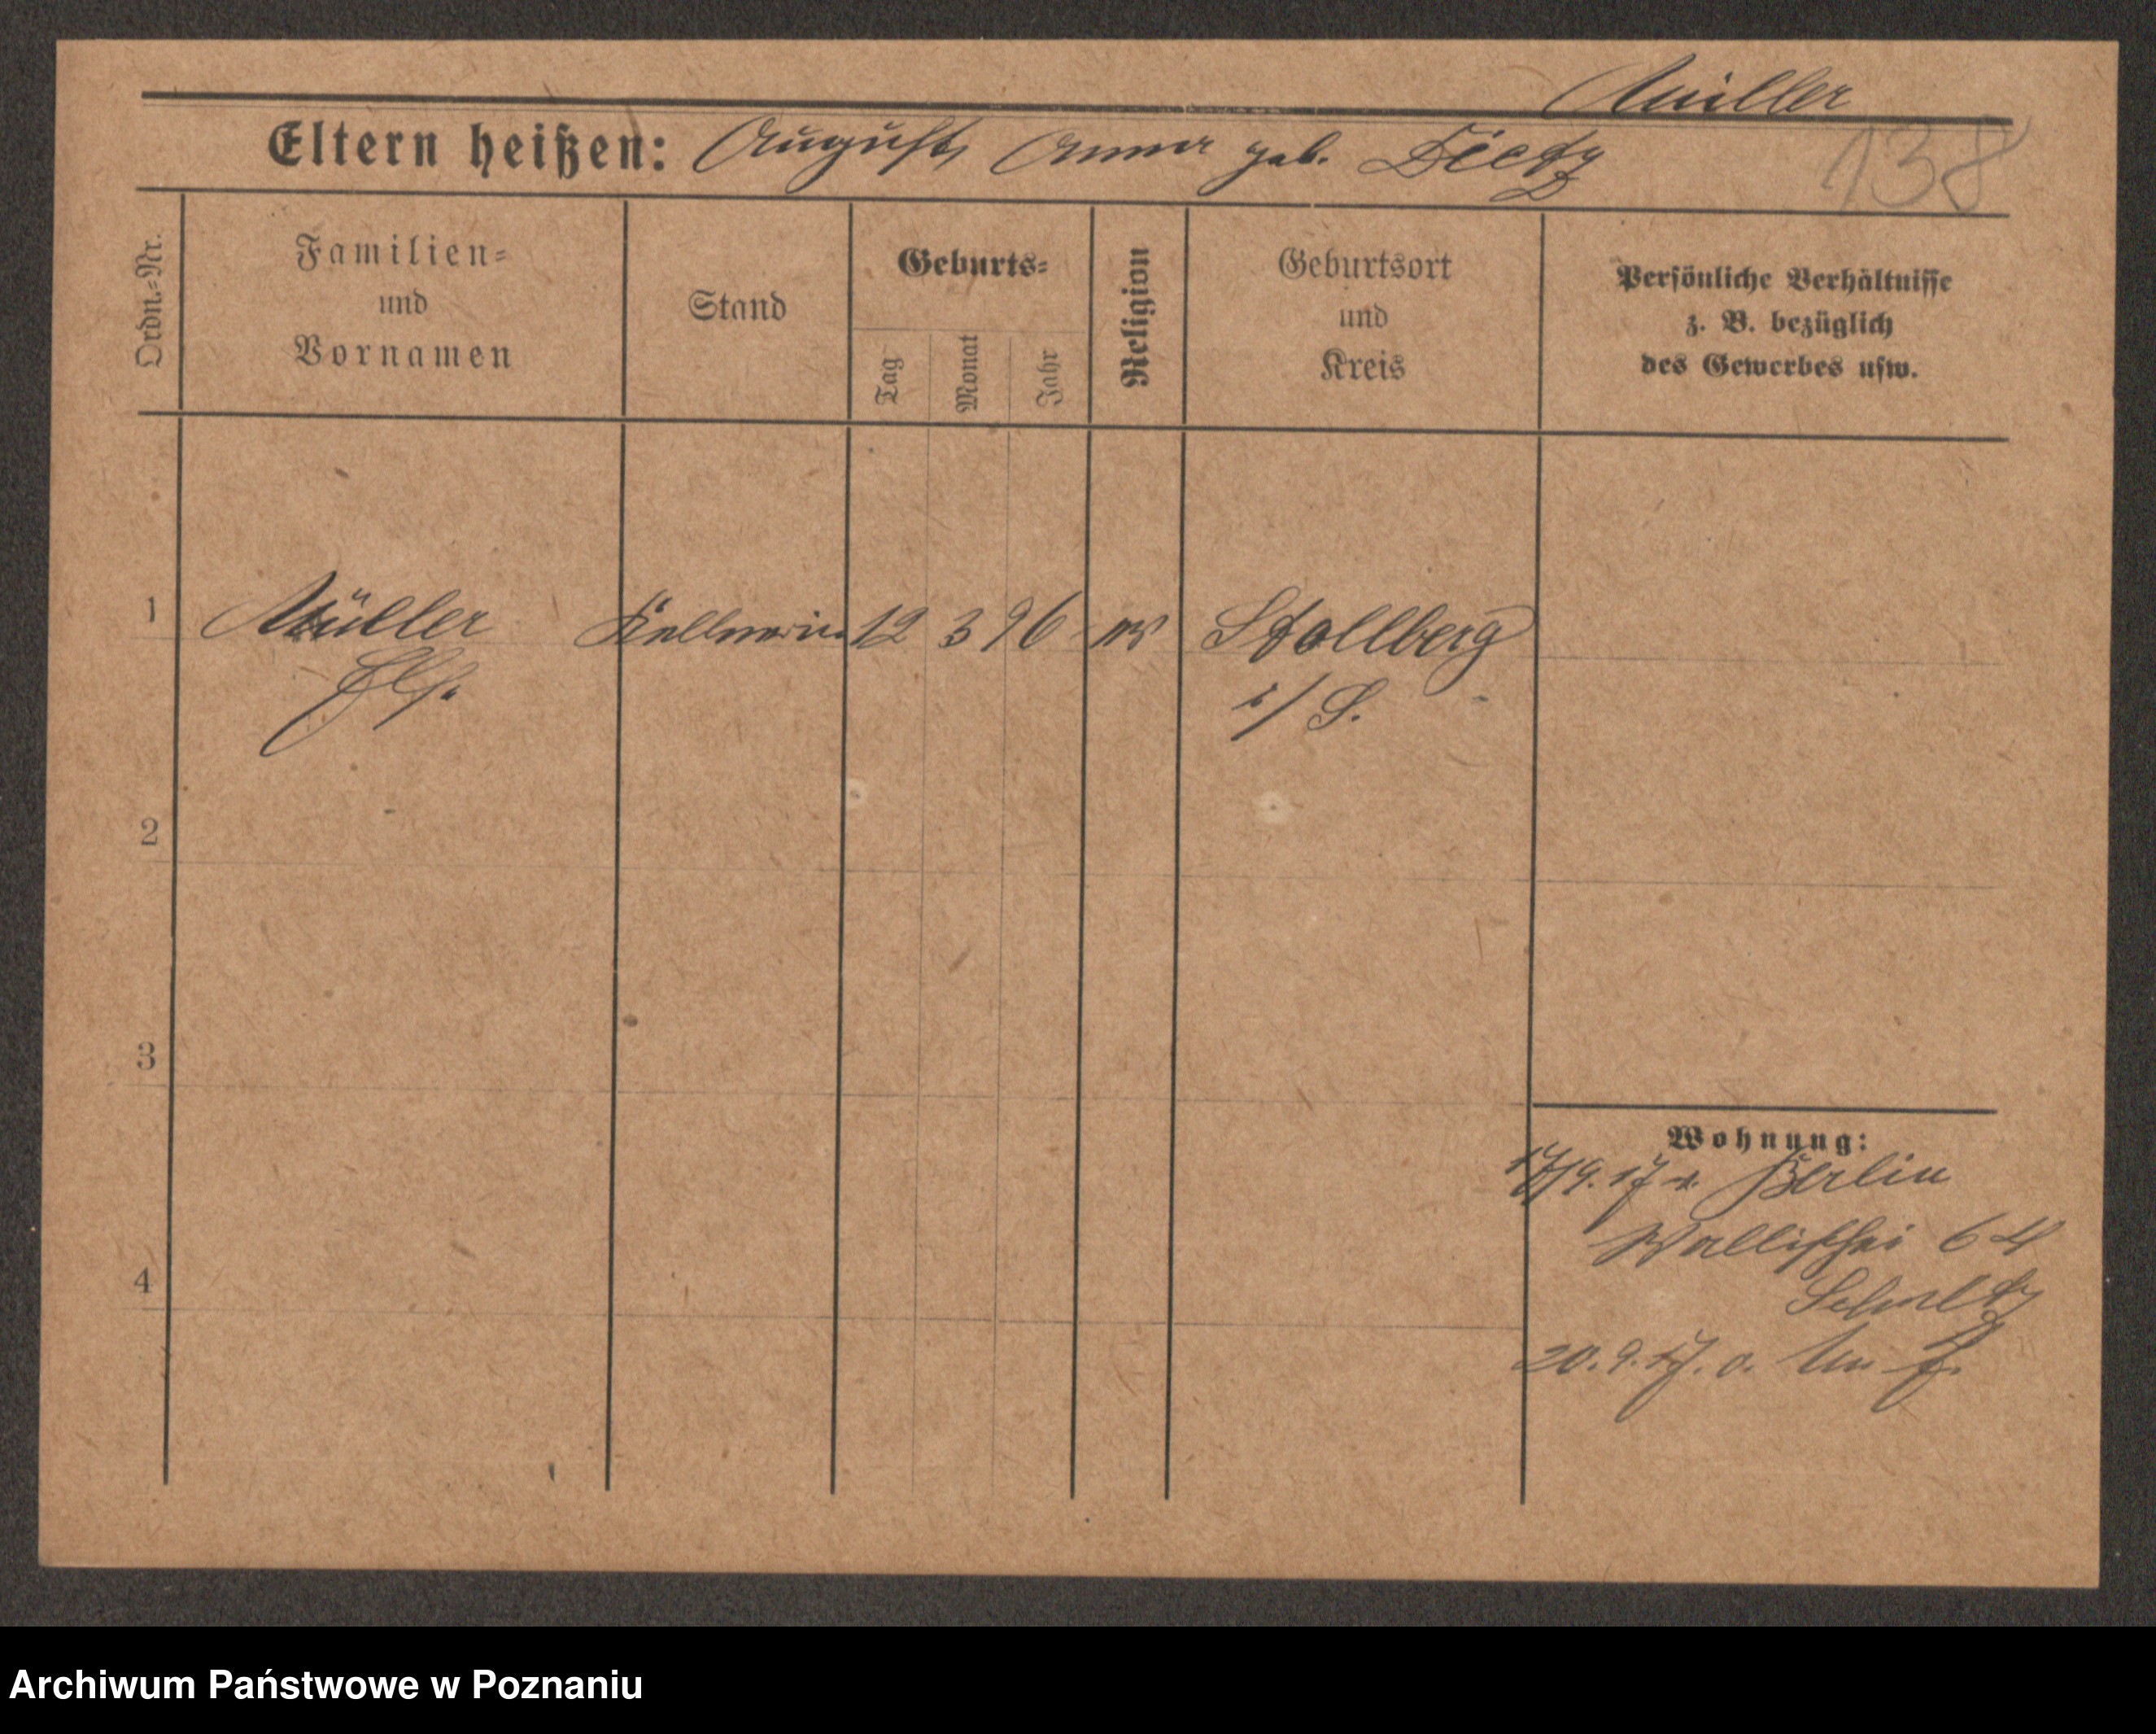 Müller
138
Eltern heißen: August, Anna geb. Dietz
Ordn.=Nr.
Familien=
und
Vornamen
Stand
Geburts=
Tag
Monat
Jahr
Religion
Geburtsort
und
Kreis
Persönliche Verhältnisse
z. B. bezüglich
des Gewerbes usw.
1 Müller Kellnerin 12 3 96 ev Stollberg
Els. i/S.
2
3
4
Wohnung:
17/9. 17 v. Berlin
Wallischei 64
Schultz
20. 9. 17. a.
Archiwum Państwowe w Poznaniu